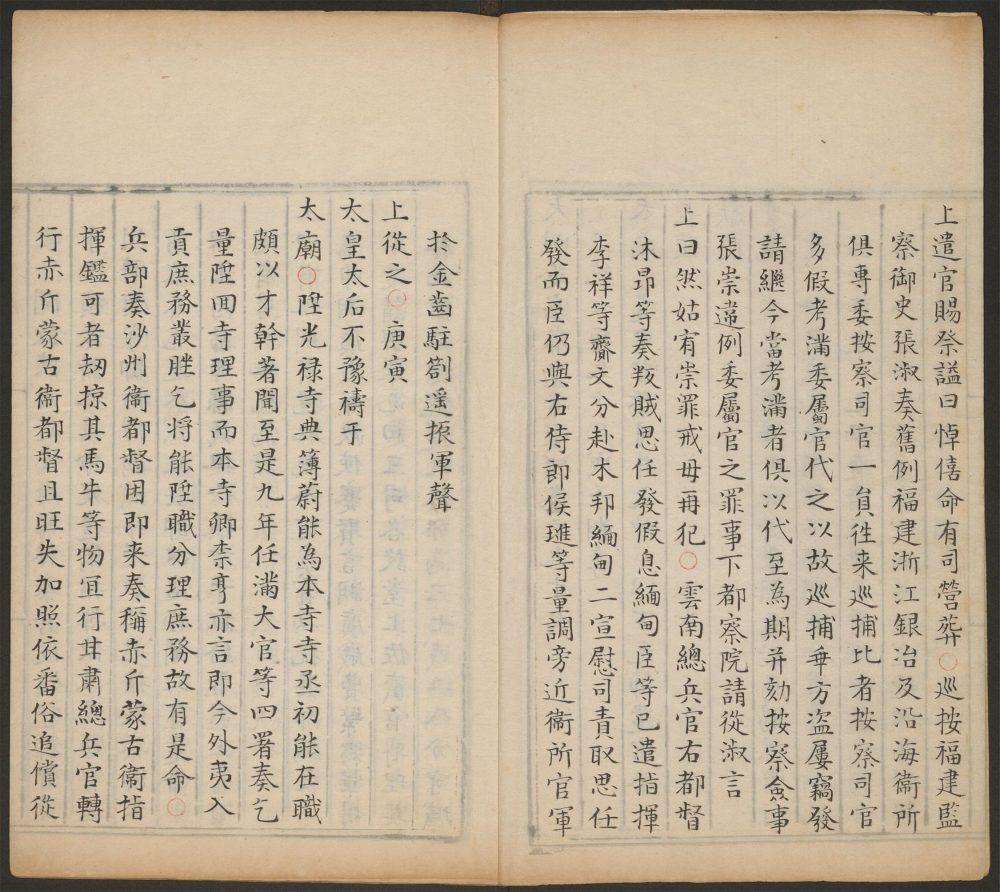 上遣官賜祭謚曰悼僖命有司營葬○巡按福建監
察御史張淑奏舊例福建浙江銀冶及沿海衞所
俱專委按察司官一員徃来巡捕比者按察司官
多假考滿委屬官代之以故巡捕乖方盗屢竊發
請繼今當考滿者俱以代至為期并劾按察僉事
張崇違例委屬官之罪事下都察院請從淑言
上曰然姑宥崇罪戒毋再犯○雲南總兵官右都督
沐昂等奏叛賊思任發假息緬甸臣等已遣指揮
李祥等齎文分赴木邦緬甸二宣慰司責取思任
發而臣仍與右侍郎侯璡等量調旁近衞所官軍
扵金齒駐劄遥振軍聲
上從之○庚寅
太皇太后不豫禱于
太廟○陞光禄寺典簿蔚能為本寺寺丞初能在職
頗以才幹著聞至是九年任滿大官等四署奏乞
量陞回寺理事而本寺卿柰亨亦言即今外夷入
貢庶務叢脞乞将能陞職分理庶務故有是命○
兵部奏沙州衞都督困即来奏稱赤斤蒙古衞指
揮鑑可者刼掠其馬牛等物冝行甘肅總兵官轉
行赤斤蒙古衞都督且旺失加照依番俗追償從